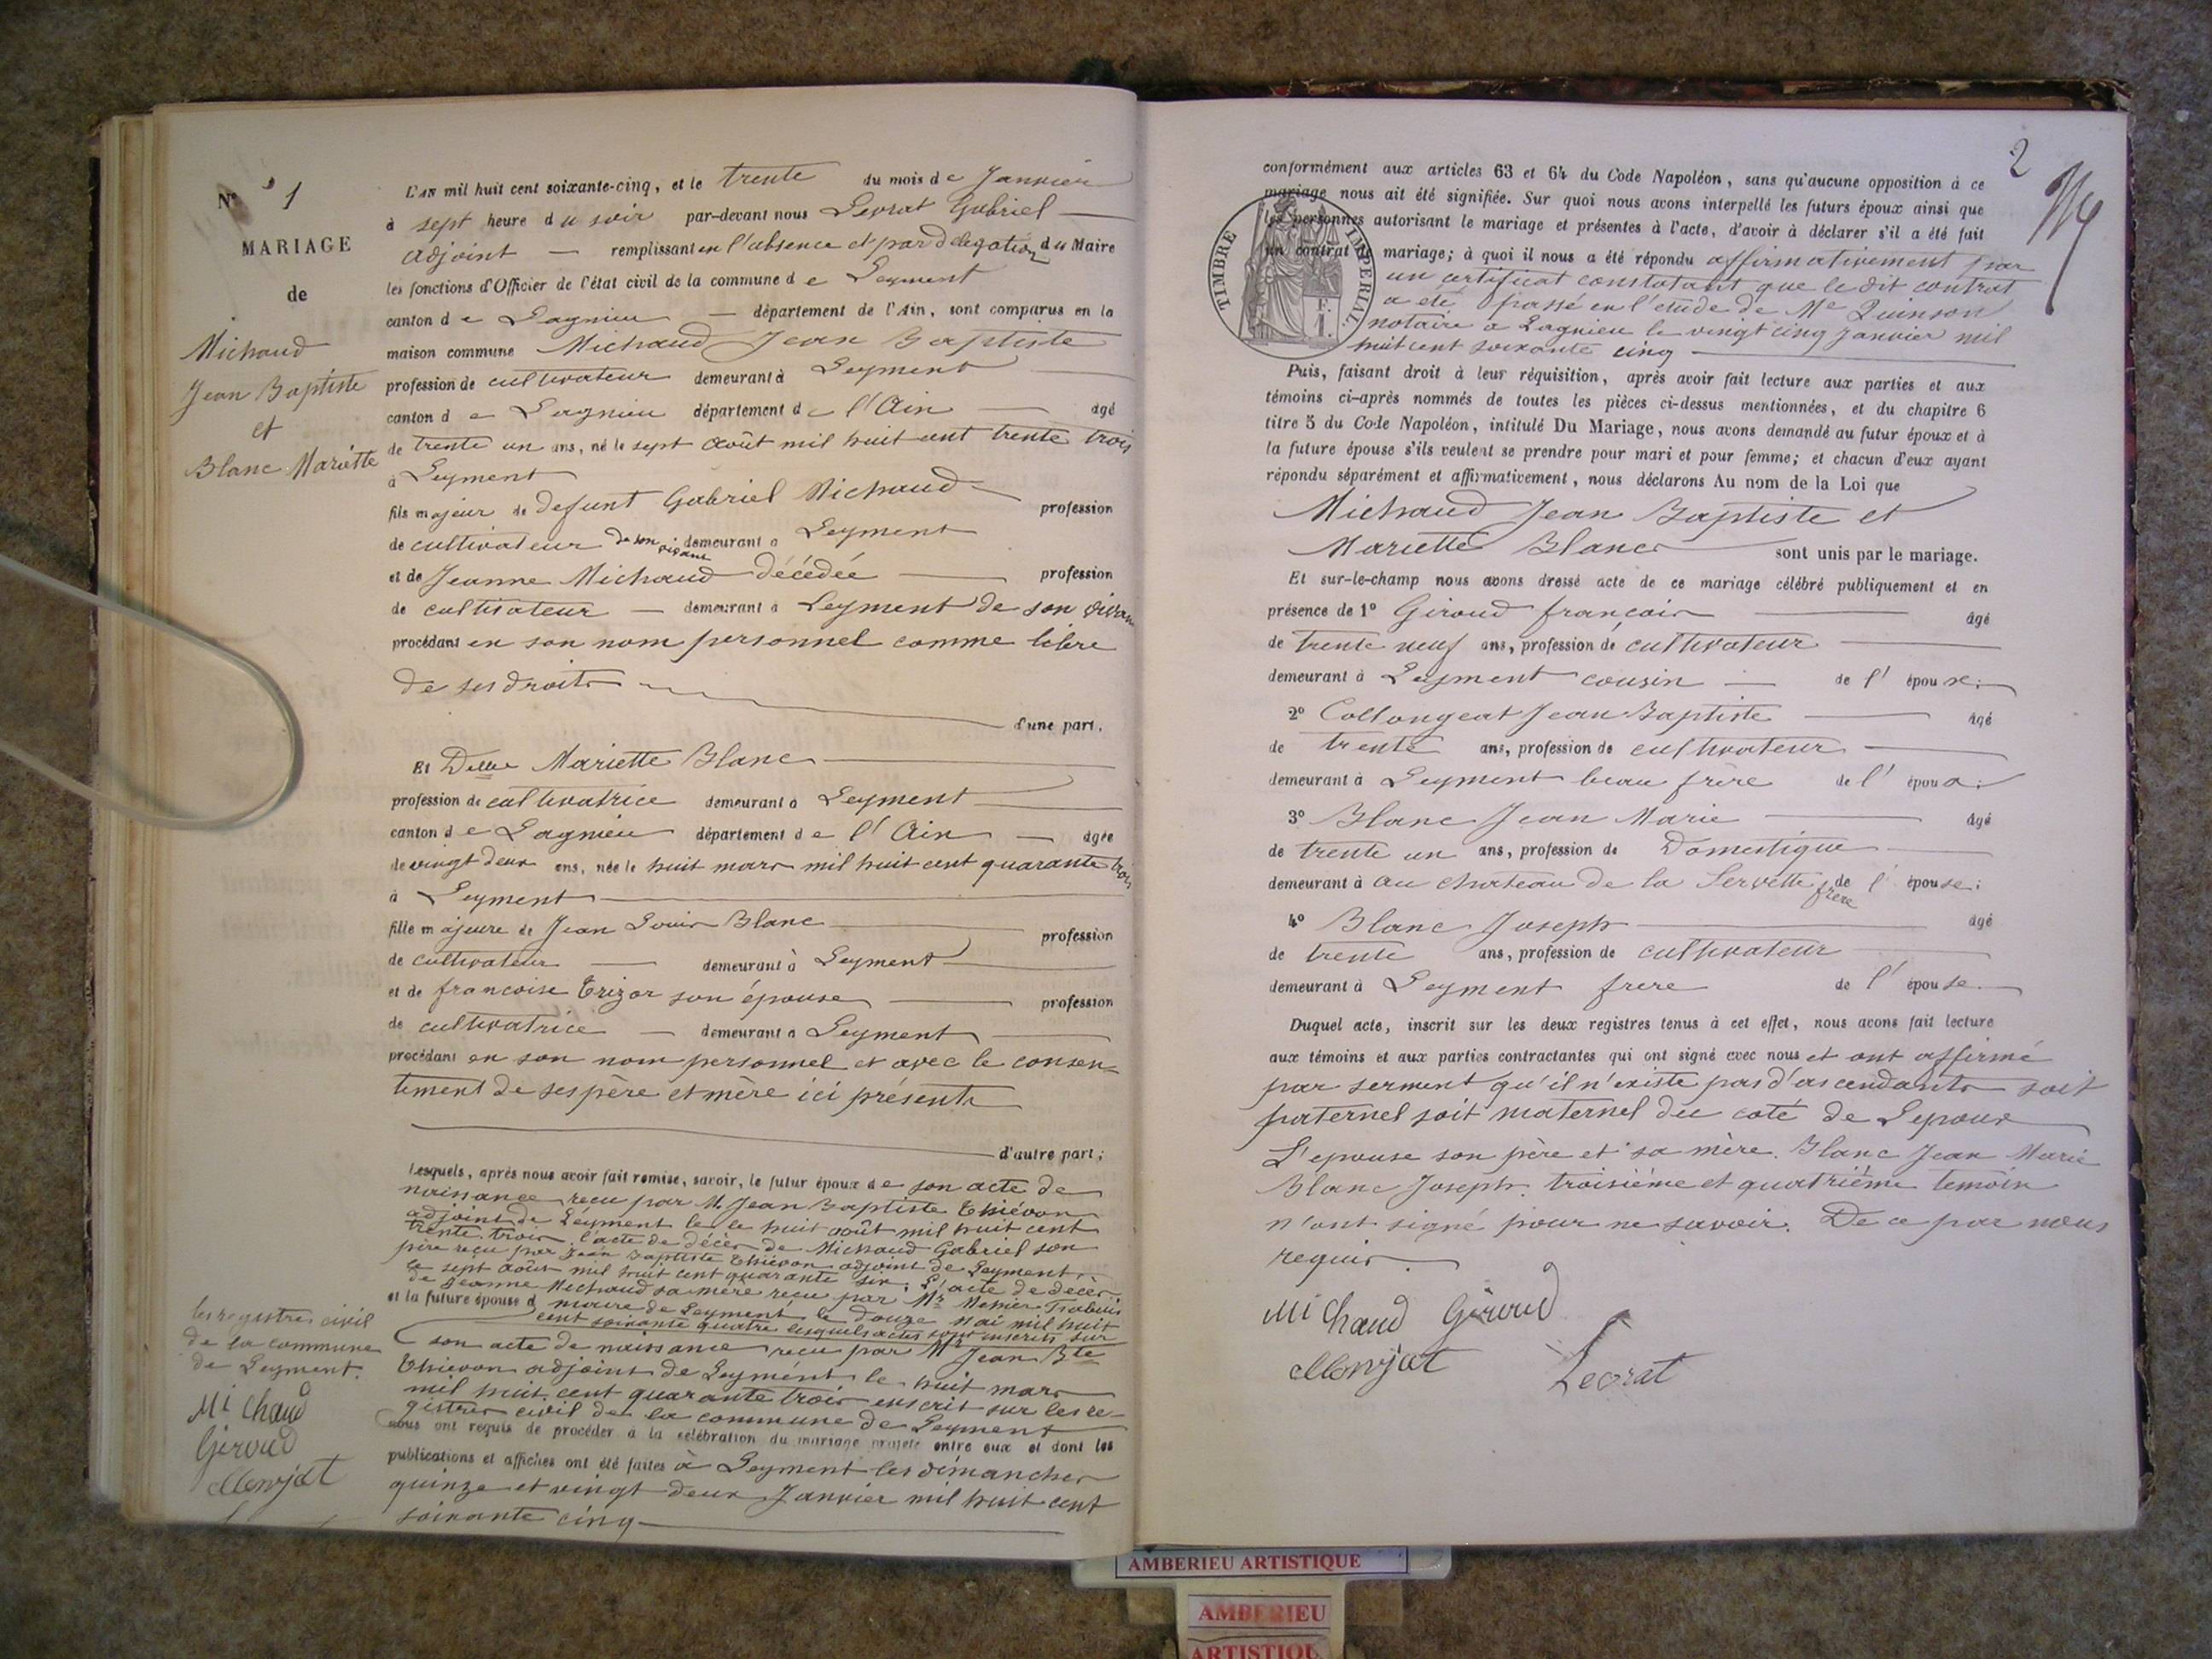 N° 1
MARIAGE
de
Michaud
Jean Baptiste
et
Blanc Mariette
L'AN mil huit cent soixante-cinq, et le trente du mois de Janvier
à sept heure du soir par-devant nous Levrat Gabriel
adjoint — remplissant en l'absence et par délégation du Maire
les fonctions d'Officier de l'état civil de la commune de Leyment
canton de Lagnieu — département de l'Ain, sont comparus en la
maison commune Michaud Jean Baptiste
profession de cultivateur demeurant à Leyment
canton de Lagnieu département de l'Ain — âgé
de trente un ans, né le sept août mil huit cent trente trois
à Leyment
fils majeur de defunt Gabriel Michaud profession
de cultivateur de son vivant demeurant à Leyment
et de Jeanne Michaud décédée — profession
de cultivateur — demeurant à Leyment de son vivant
procédant en son nom personnel comme libre
de ses droits
d'une part.
Et Delle Mariette Blanc
profession de cultivatrice demeurant à Leyment
canton de Lagnieu département de l'Ain — âgée
de vingt deux ans, née le huit mars mil huit cent quarante trois
à Leyment
fille majeure de Jean Louis Blanc profession
de cultivateur — demeurant à Leyment
et de francoise Trizor son épouse — profession
de cultivatrice — demeurant à Leyment
procédant en son nom personnel et avec le consen-
tement de ses père et mère ici présents
d'autre part;
Lesquels, après nous avoir fait remise, savoir, le futur époux de son acte de
naissance recu par M. Jean Baptiste Thiévon
adjoint de Leyment le huit août mil huit cent
trente trois, l'acte de décès de Michaud Gabriel son
père reçu par Jean Baptiste Thiévon adjoint de Leyment
le sept août mil huit cent quarante six. L'acte de décès
de Jeanne Michaud sa mère reçu par Mr
et la future épouse d maire de Leyment le douze Mai mil huit
cent soixante quatre lesquels actes sont inscrits sur
les registres civil
de la commune
de Leyment.
Michaud
Giroud
Monjat
son acte de naissance recu par Mr Jean Bte
Thievon adjoint de Leyment le huit mars
mil huit cent quarante trois enscrit sur les re-
gistres civil de la commune de Leyment
nous ont requis de procéder à la célébration du mariage projeté entre eux et dont les
publications et affiches ont été faites à Leyment les dimanches
quinze et vingt deux Janvier mil huit cent
soixante cinq
2
conformément aux articles 63 et 64 du Code Napoléon, sans qu'aucune opposition à ce
mariage nous ait été signifiée. Sur quoi nous avons interpellé les futurs époux ainsi que
les personnes autorisant le mariage et présentes à l'acte, d'avoir à déclarer s'il a été fait
un contrat de mariage; à quoi il nous a été répondu affirmativement par
un certificat constatant que le dit contrat
a été passé en l'étude de Me Quinson
notaire a Lagnieu le vingt cinq janvier mil
huit cent soixante cinq
TIMBRE IMPERIAL
F.
1.
Puis, faisant droit à leur réquisition, après avoir fait lecture aux parties et aux
témoins ci-après nommés de toutes les pièces ci-dessus mentionnées, et du chapitre 6
titre 5 du Code Napoléon, intitulé Du Mariage, nous avons demandé au futur époux et à
la future épouse s'ils veulent se prendre pour mari et pour femme; et chacun d'eux ayant
répondu séparément et affirmativement, nous déclarons Au nom de la Loi que
Michaud Jean Baptiste et
Mariette Blanc sont unis par le mariage.
Et sur-le-champ nous avons dressé acte de ce mariage célébré publiquement et en
présence de 1° Giroud françois âgé
de trente neuf ans, profession de cultivateur
demeurant à Leyment cousin — de l' époux;
2° Collongeat Jean Baptiste âgé
de trente ans, profession de cultivateur
demeurant à Leyment beau frère de l' époux;
3° Blanc Jean Marie âgé
de trente un ans, profession de Domestique
demeurant à au chateau de la Servette frere de l' épouse;
4° Blanc Joseph âgé
de trente ans, profession de cultivateur
demeurant à Leyment frere de l' épouse.
Duquel acte, inscrit sur les deux registres tenus à cet effet, nous avons fait lecture
aux témoins et aux parties contractantes qui ont signé avec nous et ont affirmé
par serment qu'il n'existe pas d'ascendants soit
paternel soit maternel du coté de Lepoux
L'epouse son père et sa mère. Blanc Jean Marie
Blanc Joseph. troisiéme et quatriéme temoin
n'ont signé pour ne savoir. De ce par nous
requis.
Michaud Giroud
Monjat Levrat
AMBERIEU ARTISTIQUE
AMBERIEU
ARTISTIQU